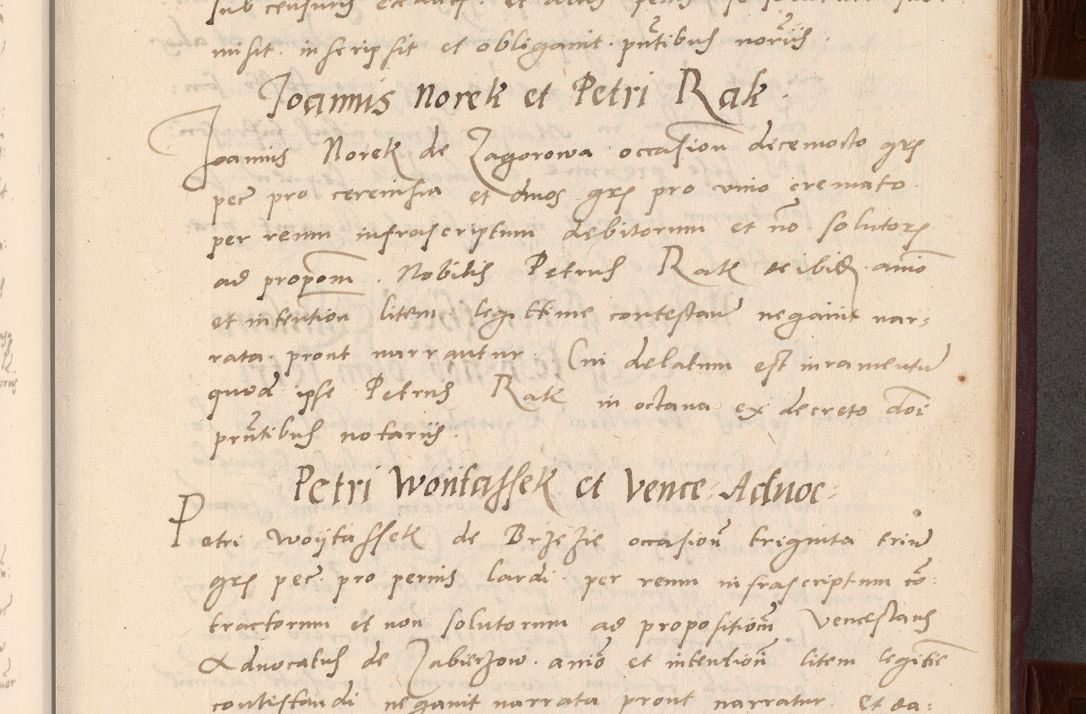 misit inscripsit et obligavit. pñtibus notariis.
Joannis Norek et Petri Rak.
Joannis Norek de Zagorowa occasion decemocto grs
pec pro cerevisia et duos grs pro vino cremato
per reum infrascriptum debitorum et nõ solutorz
ad propoem. Nobilis Petrus Rak ibidẽ animo
et intention litem legittime contestanẽ negavit nar-
rata prout narrantur. Cui delatum est iuramentũ
quod ipse Petrus Rak in octava ex decreto dñi
pñtibus notariis.
Petri Wontassek et Vence: Advoc:
Petri Woytassek de Brzezie occasioñ triginta triũ
grs pec pro pernis lardi per reum infrascriptum cõ-
tractorum et non solutorum ad propositioñ Venceslaus
Advocatus de Zabierzow animo et intentioñ litem legitie
contestandi negavit narrata prout narratur. Et ea-